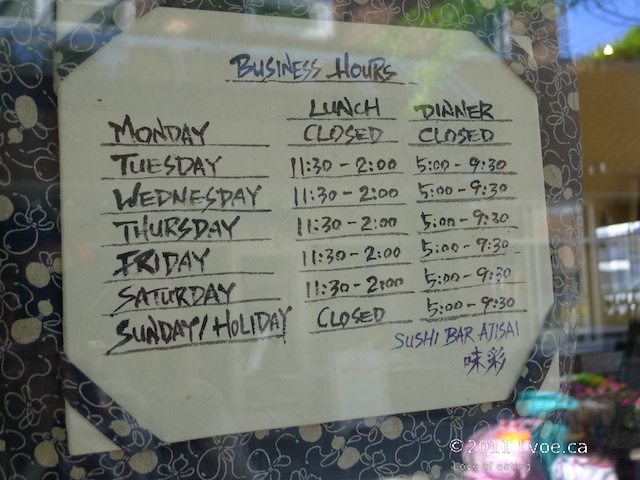 BUSINESS HOURS
LUNCH DINNER
MONDAY CLOSED CLOSED
TUESDAY 11:30-2:00 5:00-9:30
WEDNESDAY 11:30-2:00 5:00-9:30
THURSDAY 11:30-2:00 5:00-9:30
FRIDAY 11:30-2:00 5:00-9:30
SATURDAY 11:30-2:00 5:00-9:30
SUNDAY/HOLIDAY CLOSED 5:00-9:30
SUSHI BAR AJISAI
味彩
© 2011 lvoe.ca
Love of eating